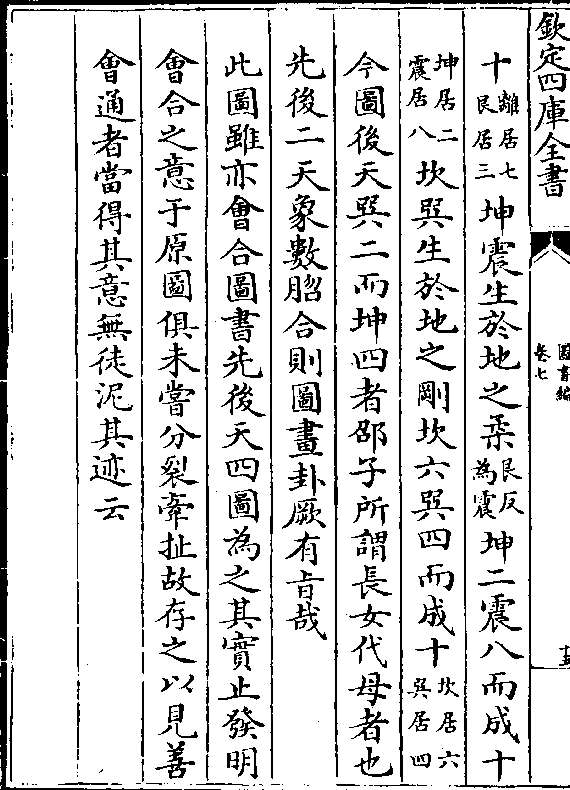 欽定四庫全書
圖書編
卷七
十離居七艮居三坤震生於地之柔艮反為震坤二震八而成十
坤居二震居八坎巽生於地之剛坎六巽四而成十坎居六巽居四
今圖後天巽二而坤四者邵子所謂長女代母者也
先後二天象數脗合則圖畫卦厥有旨哉
此圖雖亦會合圖書先後天四圖為之其實止發明
會合之意于原圖俱未嘗分裂牽扯故存之以見善
會通者當得其意無徒泥其迹云